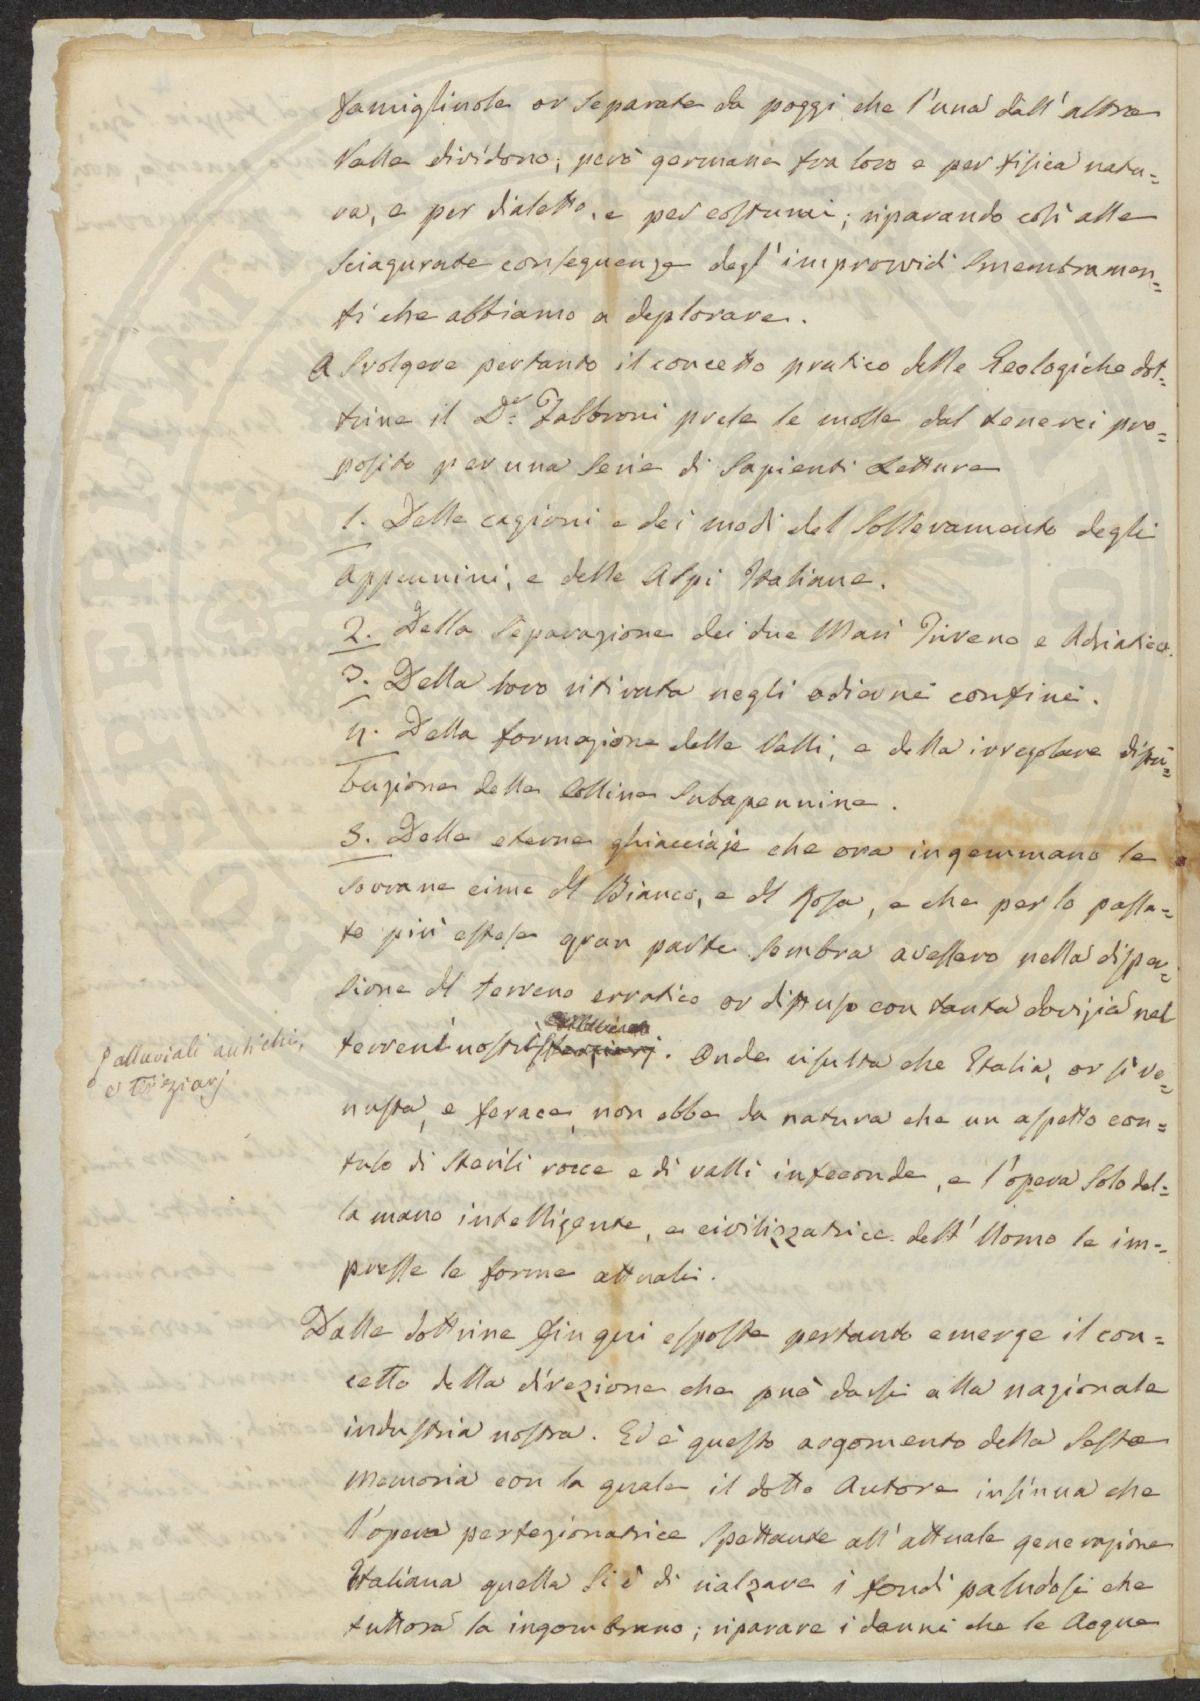 famigliuole or separate da poggi che l'una dall'altra
Valle dividono; però germane fra loro e per fisica natu=
ra, e per dialetto, e per costumi; riparando così alle
sciagurate conseguenze degl'improvvidi smembramen=
ti che abbiamo a deplorare.
A svolgere pertanto il concetto pratico delle Geologiche dot=
trine il D.r Fabbroni prese le mosse dal tenerci pro=
posito per una serie di sapienti Letture
1. Delle cagioni e dei modi del sollevamento degli
Appennini, e delle Alpi Italiane.
2. Della separazione dei due Mari Tirreno e Adriatico.
3. Della loro ritirata negli odierni confini.
4. Della formazione delle Valli, e della irregolare distri=
buzione delle Colline Subapennine.
5. Delle eterne ghiacciaje che ora ingemmano le
sovrane cime del Bianco, e del Rosa, e che per lo passa=
to più estese gran parte sembra avessero nella disper=
sione del terreno erratico or diffuso con tanta dovizia nel
terreni nostri terziarj. Onde risulta che Italia, or sì ve=
alluviali antichi,
e Terziarj
nusta, e ferace, non ebbe da natura che un aspetto con=
fuso di sterili rocce e di valli infeconde, e l'opera solo del=
la mano intelligente, e civilizzatrice dell'Uomo le im=
presse le forme attuali.
Dalle dottrine fin qui esposte pertanto emerge il con=
cetto della direzione che può darsi alla nazionale
industria nostra. Ed è questo argomento della Sesta
Memoria con la quale il dotto Autore insinua che
l'opera perfezionatrice spettante all'attuale generazione
Italiana quella si è di rialzare i fondi paludosi che
tuttora la ingombrano; riparare i danni che le Acque